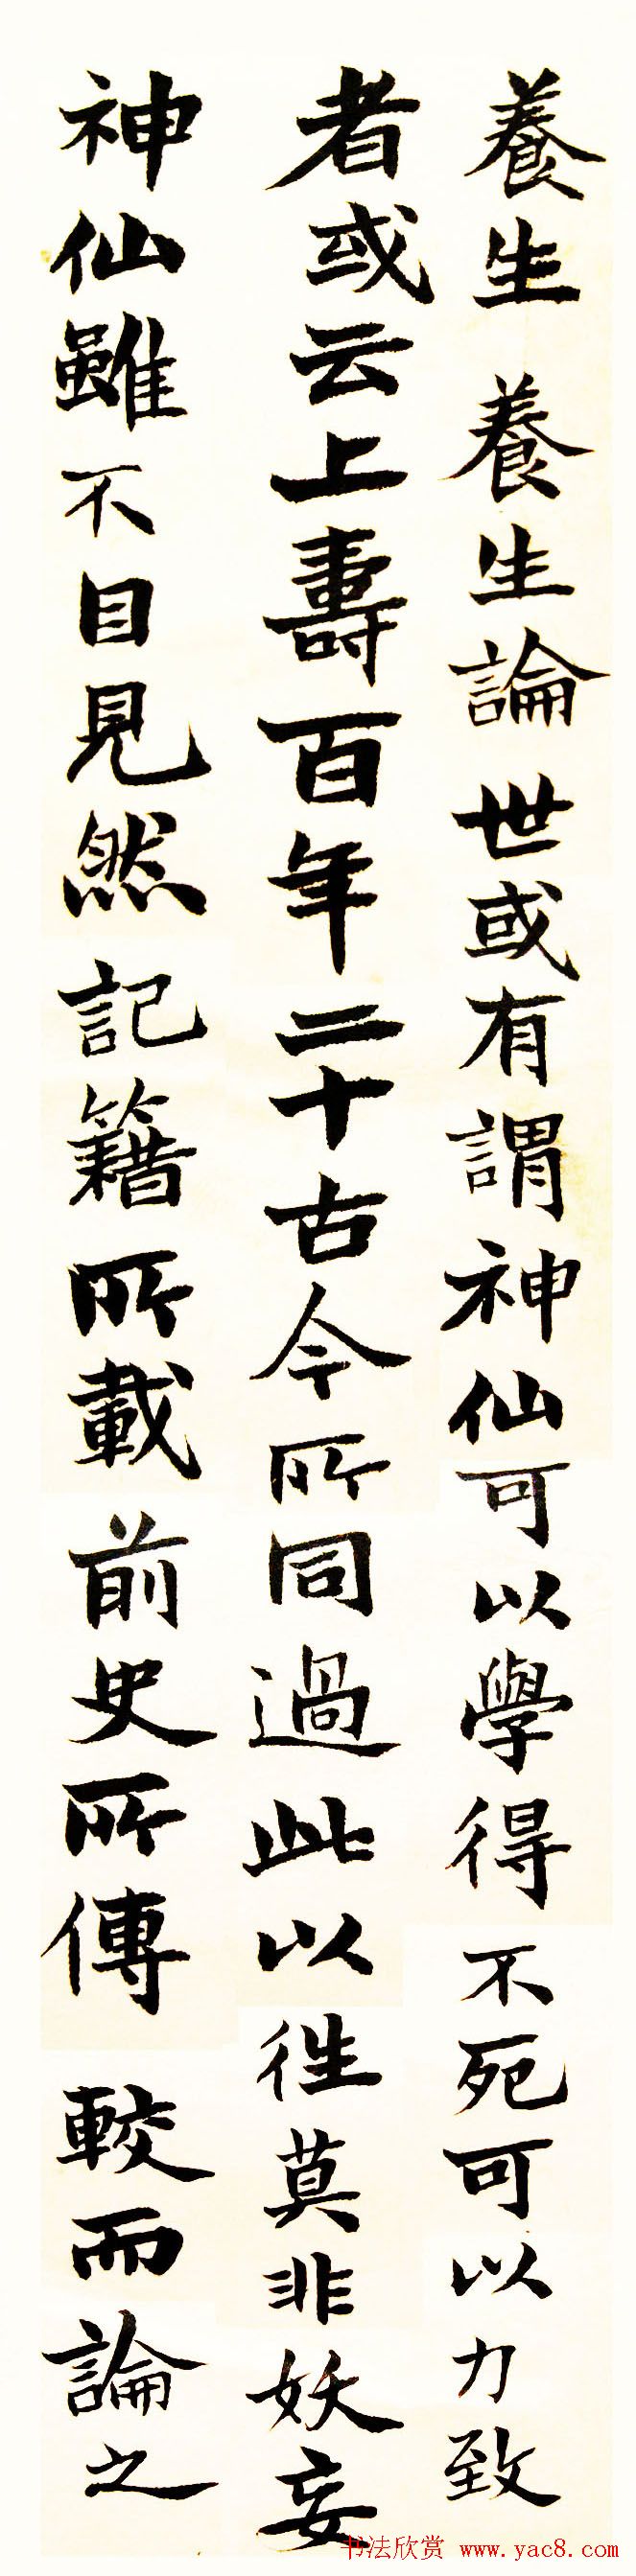 養生 養生論 世或有謂神仙可以學得不死可以力致
者或云上壽百年二十古今所同過此以徃莫非妖妄
神仙雖不目見然記籍所載前史所傳較而論之
书法欣赏 www.yac8.com